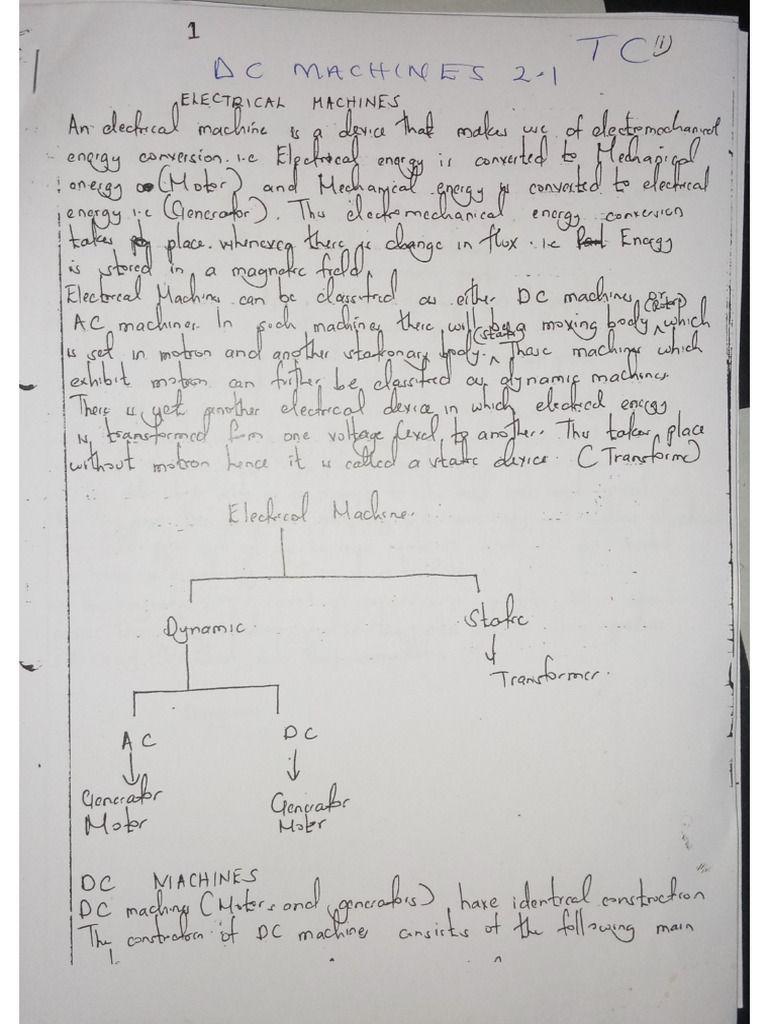 1
TC (i)
DC MACHINES 2.1
ELECTRICAL MACHINES
An electrical machine is a device that makes use of electromechanical
energy conversion. i.e Electrical energy is converted to Mechanical
energy (Motor) and Mechanical energy is converted to electrical
energy i.e (Generator). This electromechanical energy conversion
takes place whenever there is change in flux. i.e Energy
is stored in a magnetic field.
Electrical Machines can be classified as either DC machines or
AC machines. In such machines there will be a moving body (Rotor) which
is set in motion and another stationary body. (Stator) These machines which
exhibit motion can further be classified as dynamic machines.
There is yet another electrical device in which electrical energy
is transformed from one voltage level to another. This takes place
without motion hence it is called a static device. (Transformer)
Electrical Machine.
Dynamic. Static
Transformer.
AC DC
Generator Generator
Motor Motor
DC MACHINES
DC machines (Motors and generators) have identical construction
The construction of DC machines consists of the following main